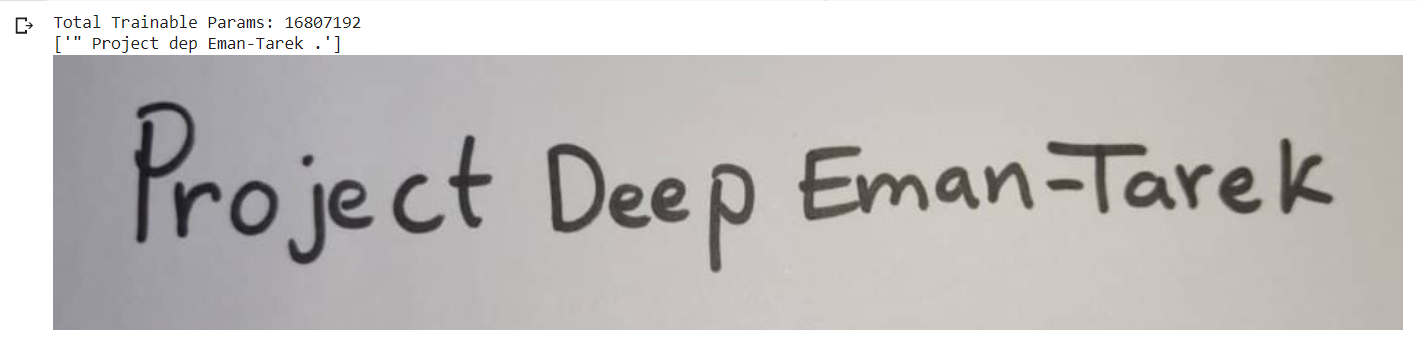 Total Trainable Params: 16807192
['" Project dep Eman-Tarek .']
Project Deep Eman-Tarek